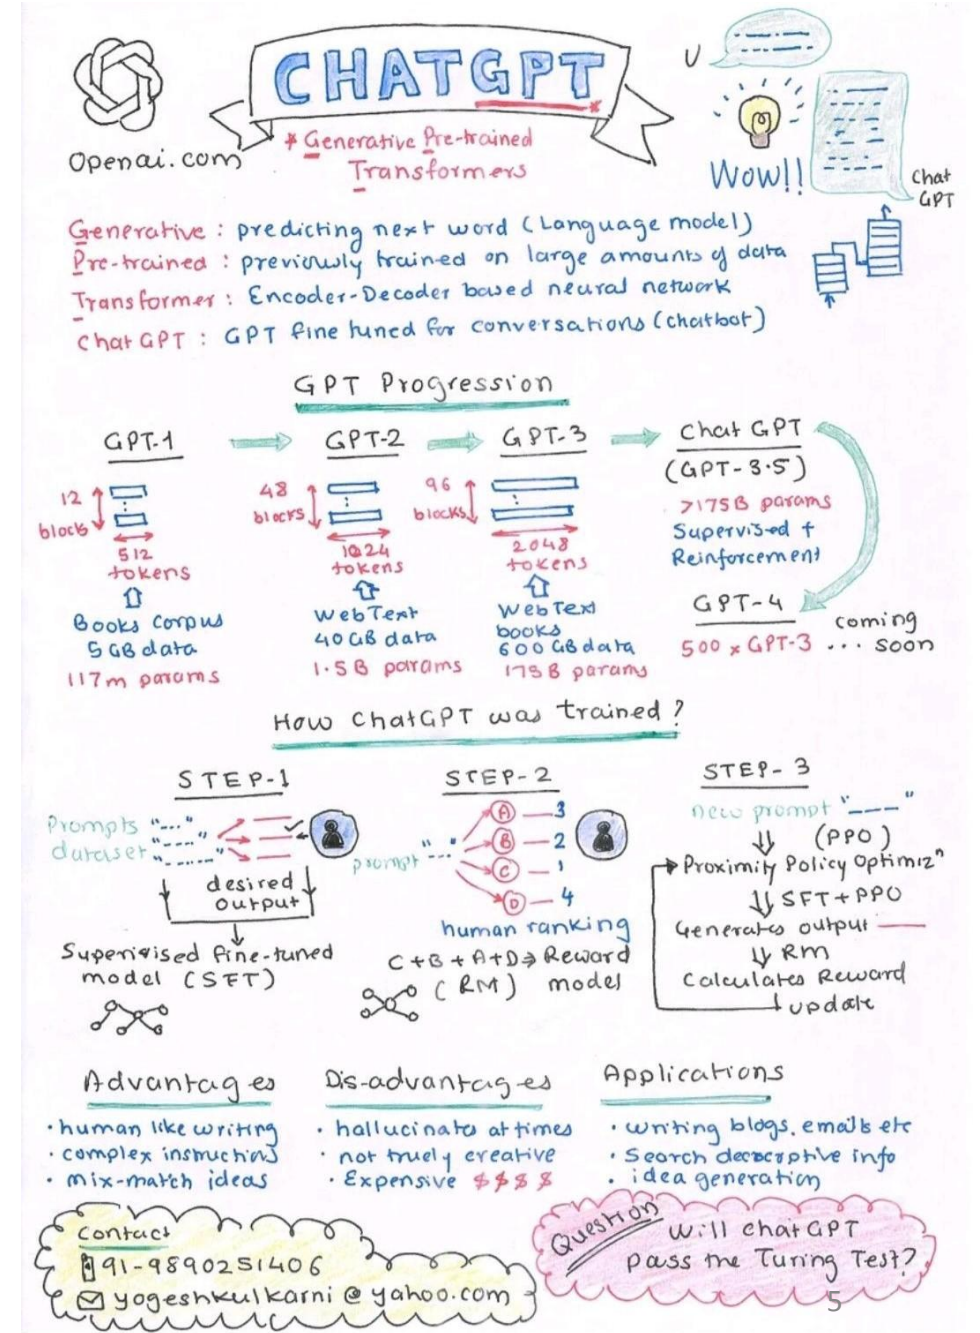 CHATGPT
Openai.com
* Generative Pre-trained
Transformers
U
Wow!!
Chat
GPT
Generative : predicting next word (Language model)
Pre-trained : previously trained on large amounts of data
Transformer : Encoder-Decoder based neural network
Chat GPT : GPT fine tuned for conversations (chatbot)
GPT Progression
GPT-1
12
blocks
512
tokens
Books Corpus
5 GB data
117m params
GPT-2
48
blocks
1024
tokens
WebText
40 GB data
1.5B params
GPT-3
96
blocks
2048
tokens
WebText
books
600 GB data
175B params
Chat GPT
(GPT-3.5)
>175B params
Supervised +
Reinforcement
GPT-4
500 x GPT-3
coming
... soon
How ChatGPT was trained?
STEP-1
Prompts "---"
dataset "----"
desired
output
Supervised fine-tuned
model (SFT)
STEP-2
prompt "---"
A — 3
B — 2
C — 1
D — 4
human ranking
C+B+A+D⇒ Reward
(RM) model
STEP-3
new prompt "---"
(PPO)
Proximity Policy Optimizⁿ
SFT+PPO
Generates output
RM
Calculates Reward
update
Advantages
• human like writing
• complex instructions
• mix-match ideas
Dis-advantages
• hallucinates at times
• not truely creative
• Expensive $$$$
Applications
• writing blogs, emails etc
• Search descriptive info
• idea generation
Contact
91-9890251406
yogeshkulkarni@yahoo.com
Question
Will chatGPT
pass the Turing Test?
5